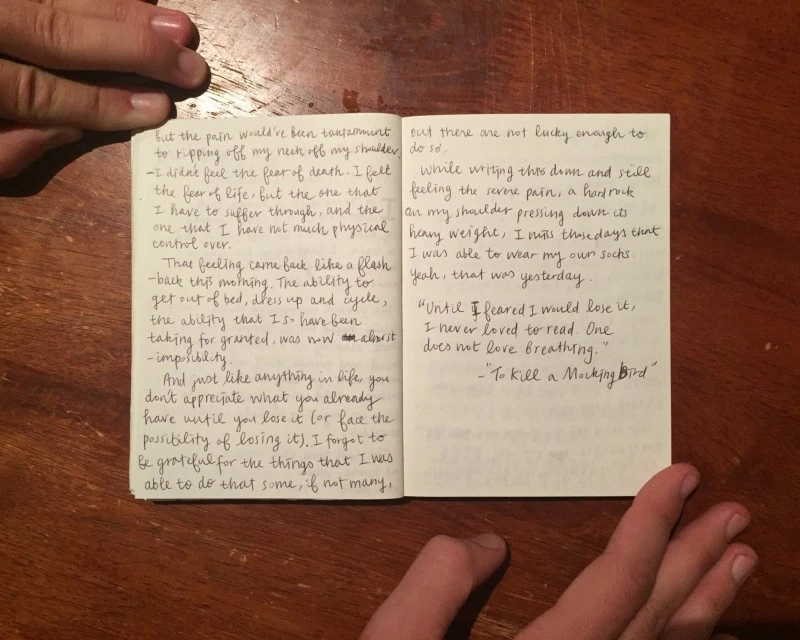 but the pain would've been tantamount
to ripping off my neck off my shoulder.
-I didn't feel the fear of death. I felt
the fear of life, but the one that
I have to suffer through, and the
one that I have not much physical
control over.
That feeling came back like a flash
-back this morning. The ability to
get out of bed, dress up and cycle,
the ability that I so have been
taking for granted, was now almost
-impossibility.
And just like anything in life, you
don't appreciate what you already
have until you lose it (or face the
possibility of losing it). I forgot to
be grateful for the things that I was
able to do that some, if not many,
out there are not lucky enough to
do so.
While writing this down and still
feeling the severe pain, a hard rock
on my shoulder pressing down its
heavy weight, I miss those days that
I was able to wear my own socks.
Yeah, that was yesterday.
"Until I feared I would lose it,
I never loved to read. One
does not love breathing."
-"To Kill a Mocking Bird"